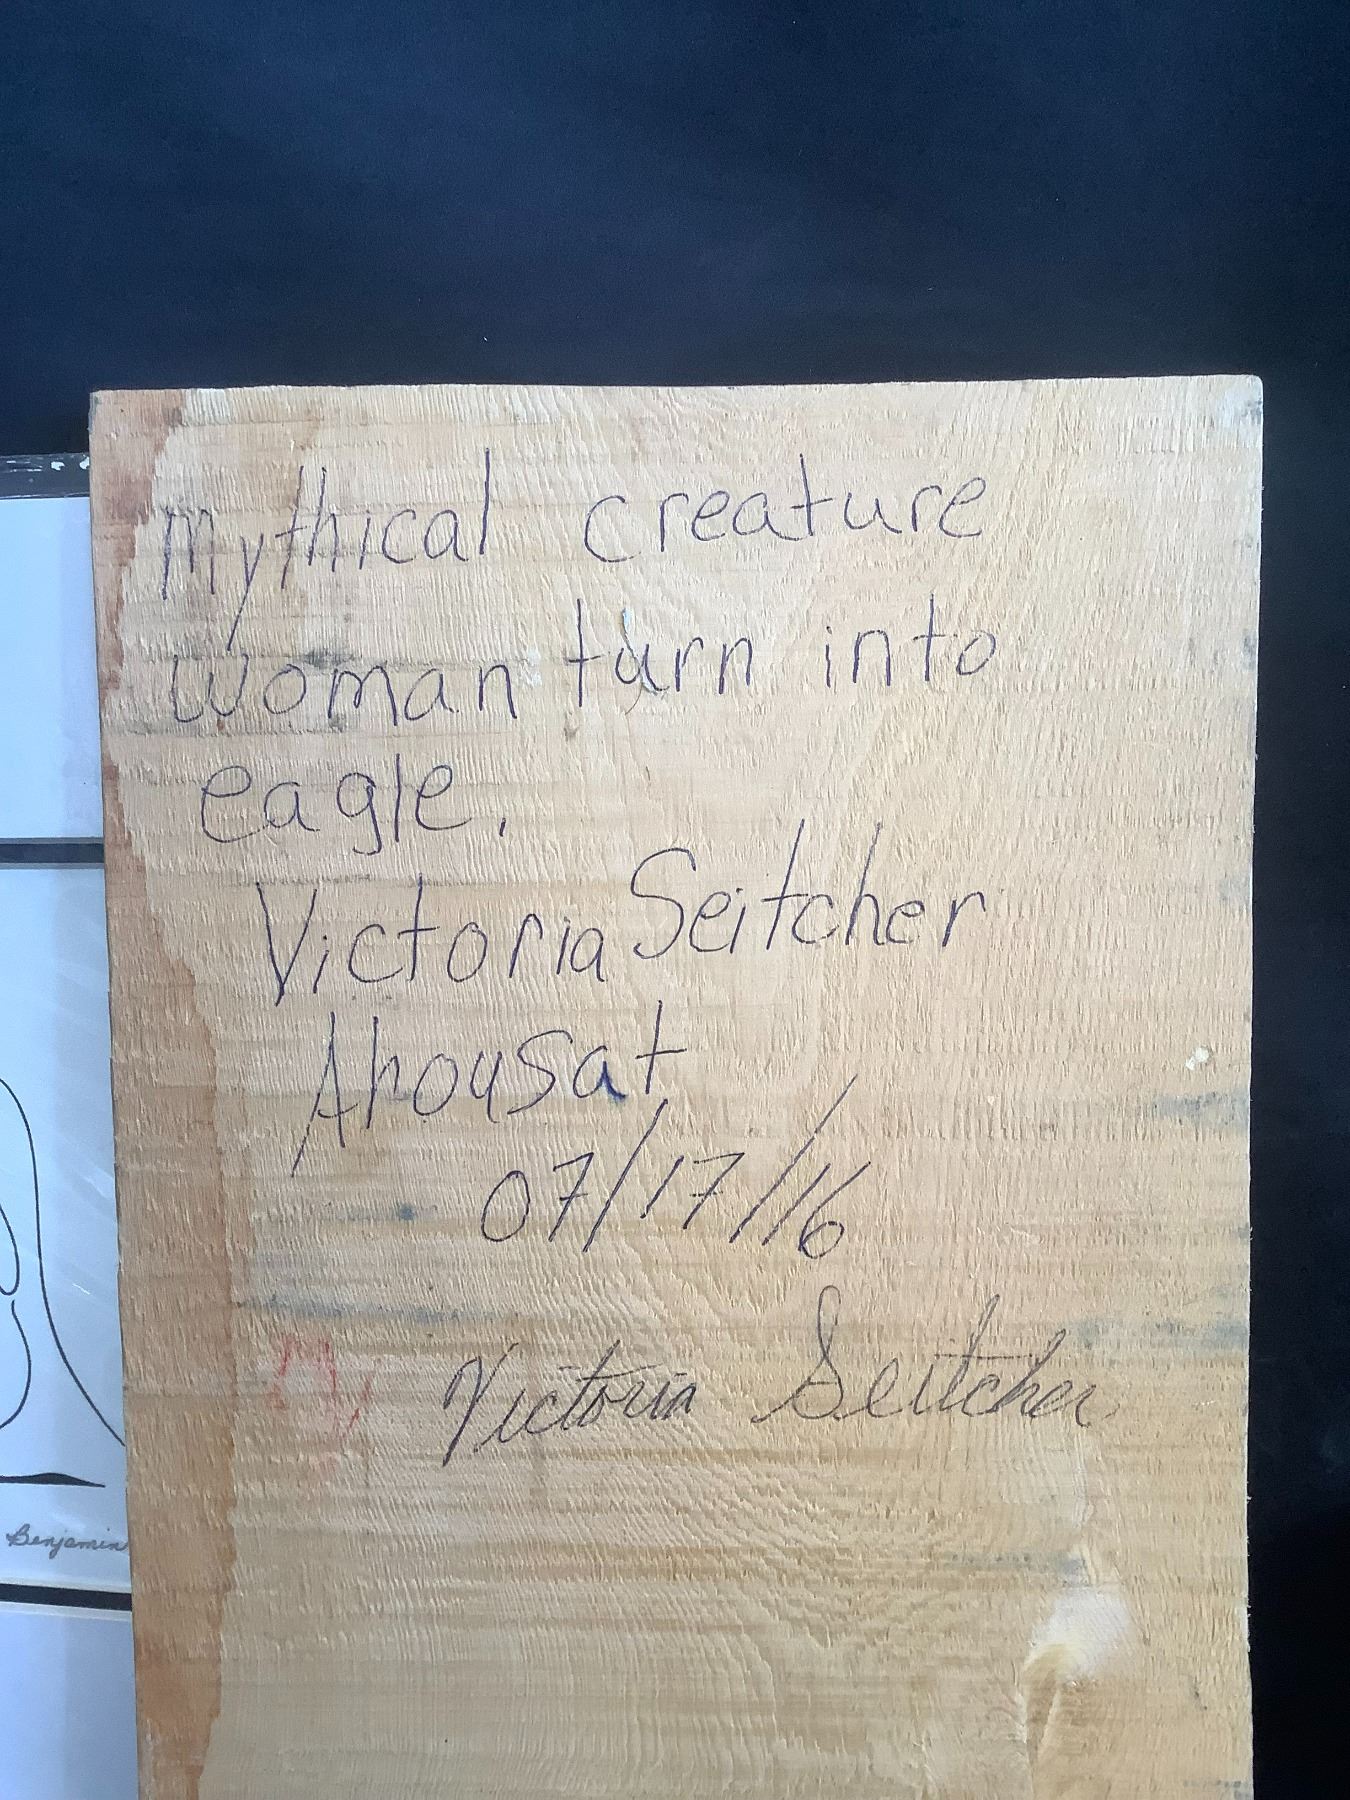 Mythical creature
woman turn into
eagle.
Victoria Seitcher
Ahousat
07/17/16
Victoria Seitcher
Benjamin